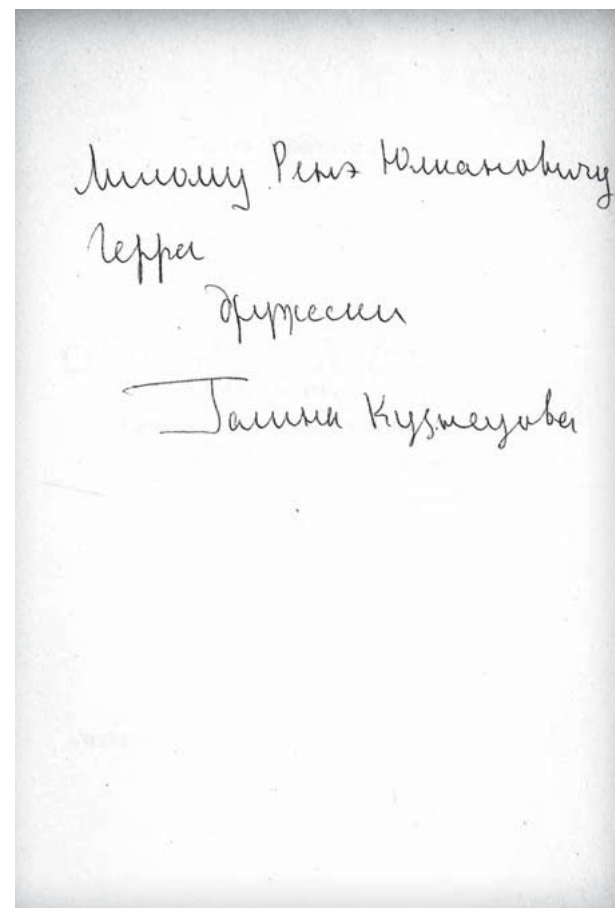 Милому Ренэ Юлиановичу
Герра
дружески
Галина Кузнецова